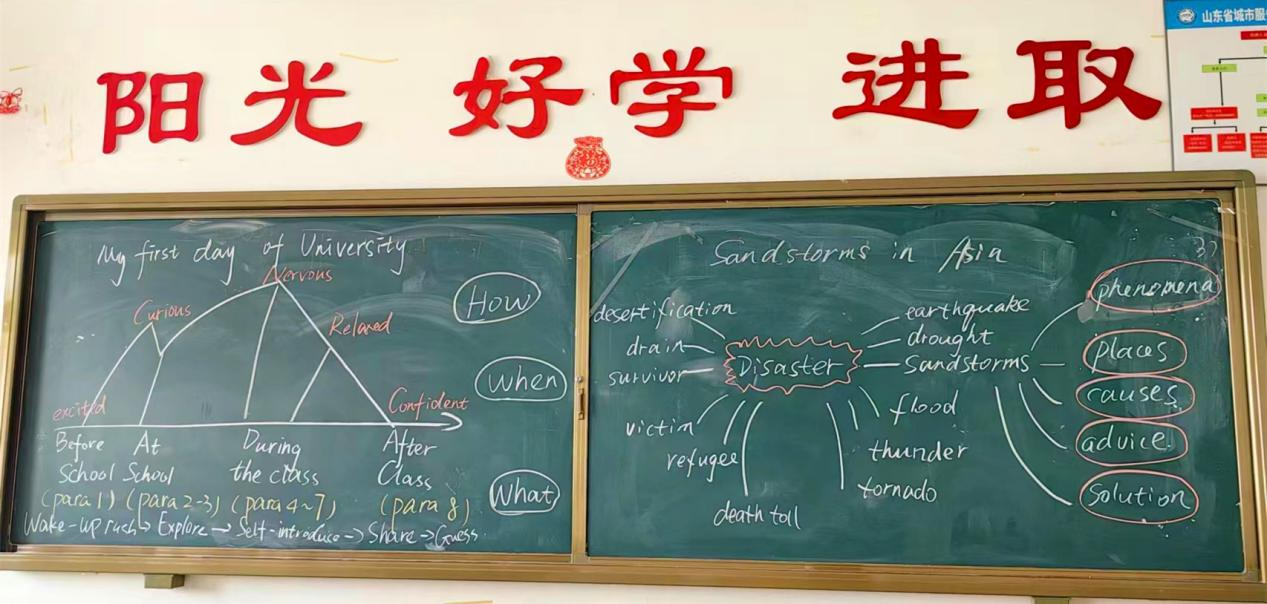 阳光 好学 进取
山东省城市服
My first day of University
Nervous
Curious
Relaxed
excited
Confident
How
When
What
Before School
At School
During the class
After Class
(para 1) (para 2-3) (para 4~7) (para 8)
Wake-up rush → Explore → Self-introduce → Share → Guess
Sandstorms in Asia
desertification
drain
survivor
victim
refugee
death toll
Disaster
earthquake
drought
Sandstorms
flood
thunder
tornado
phenomena
places
causes
advice
solution